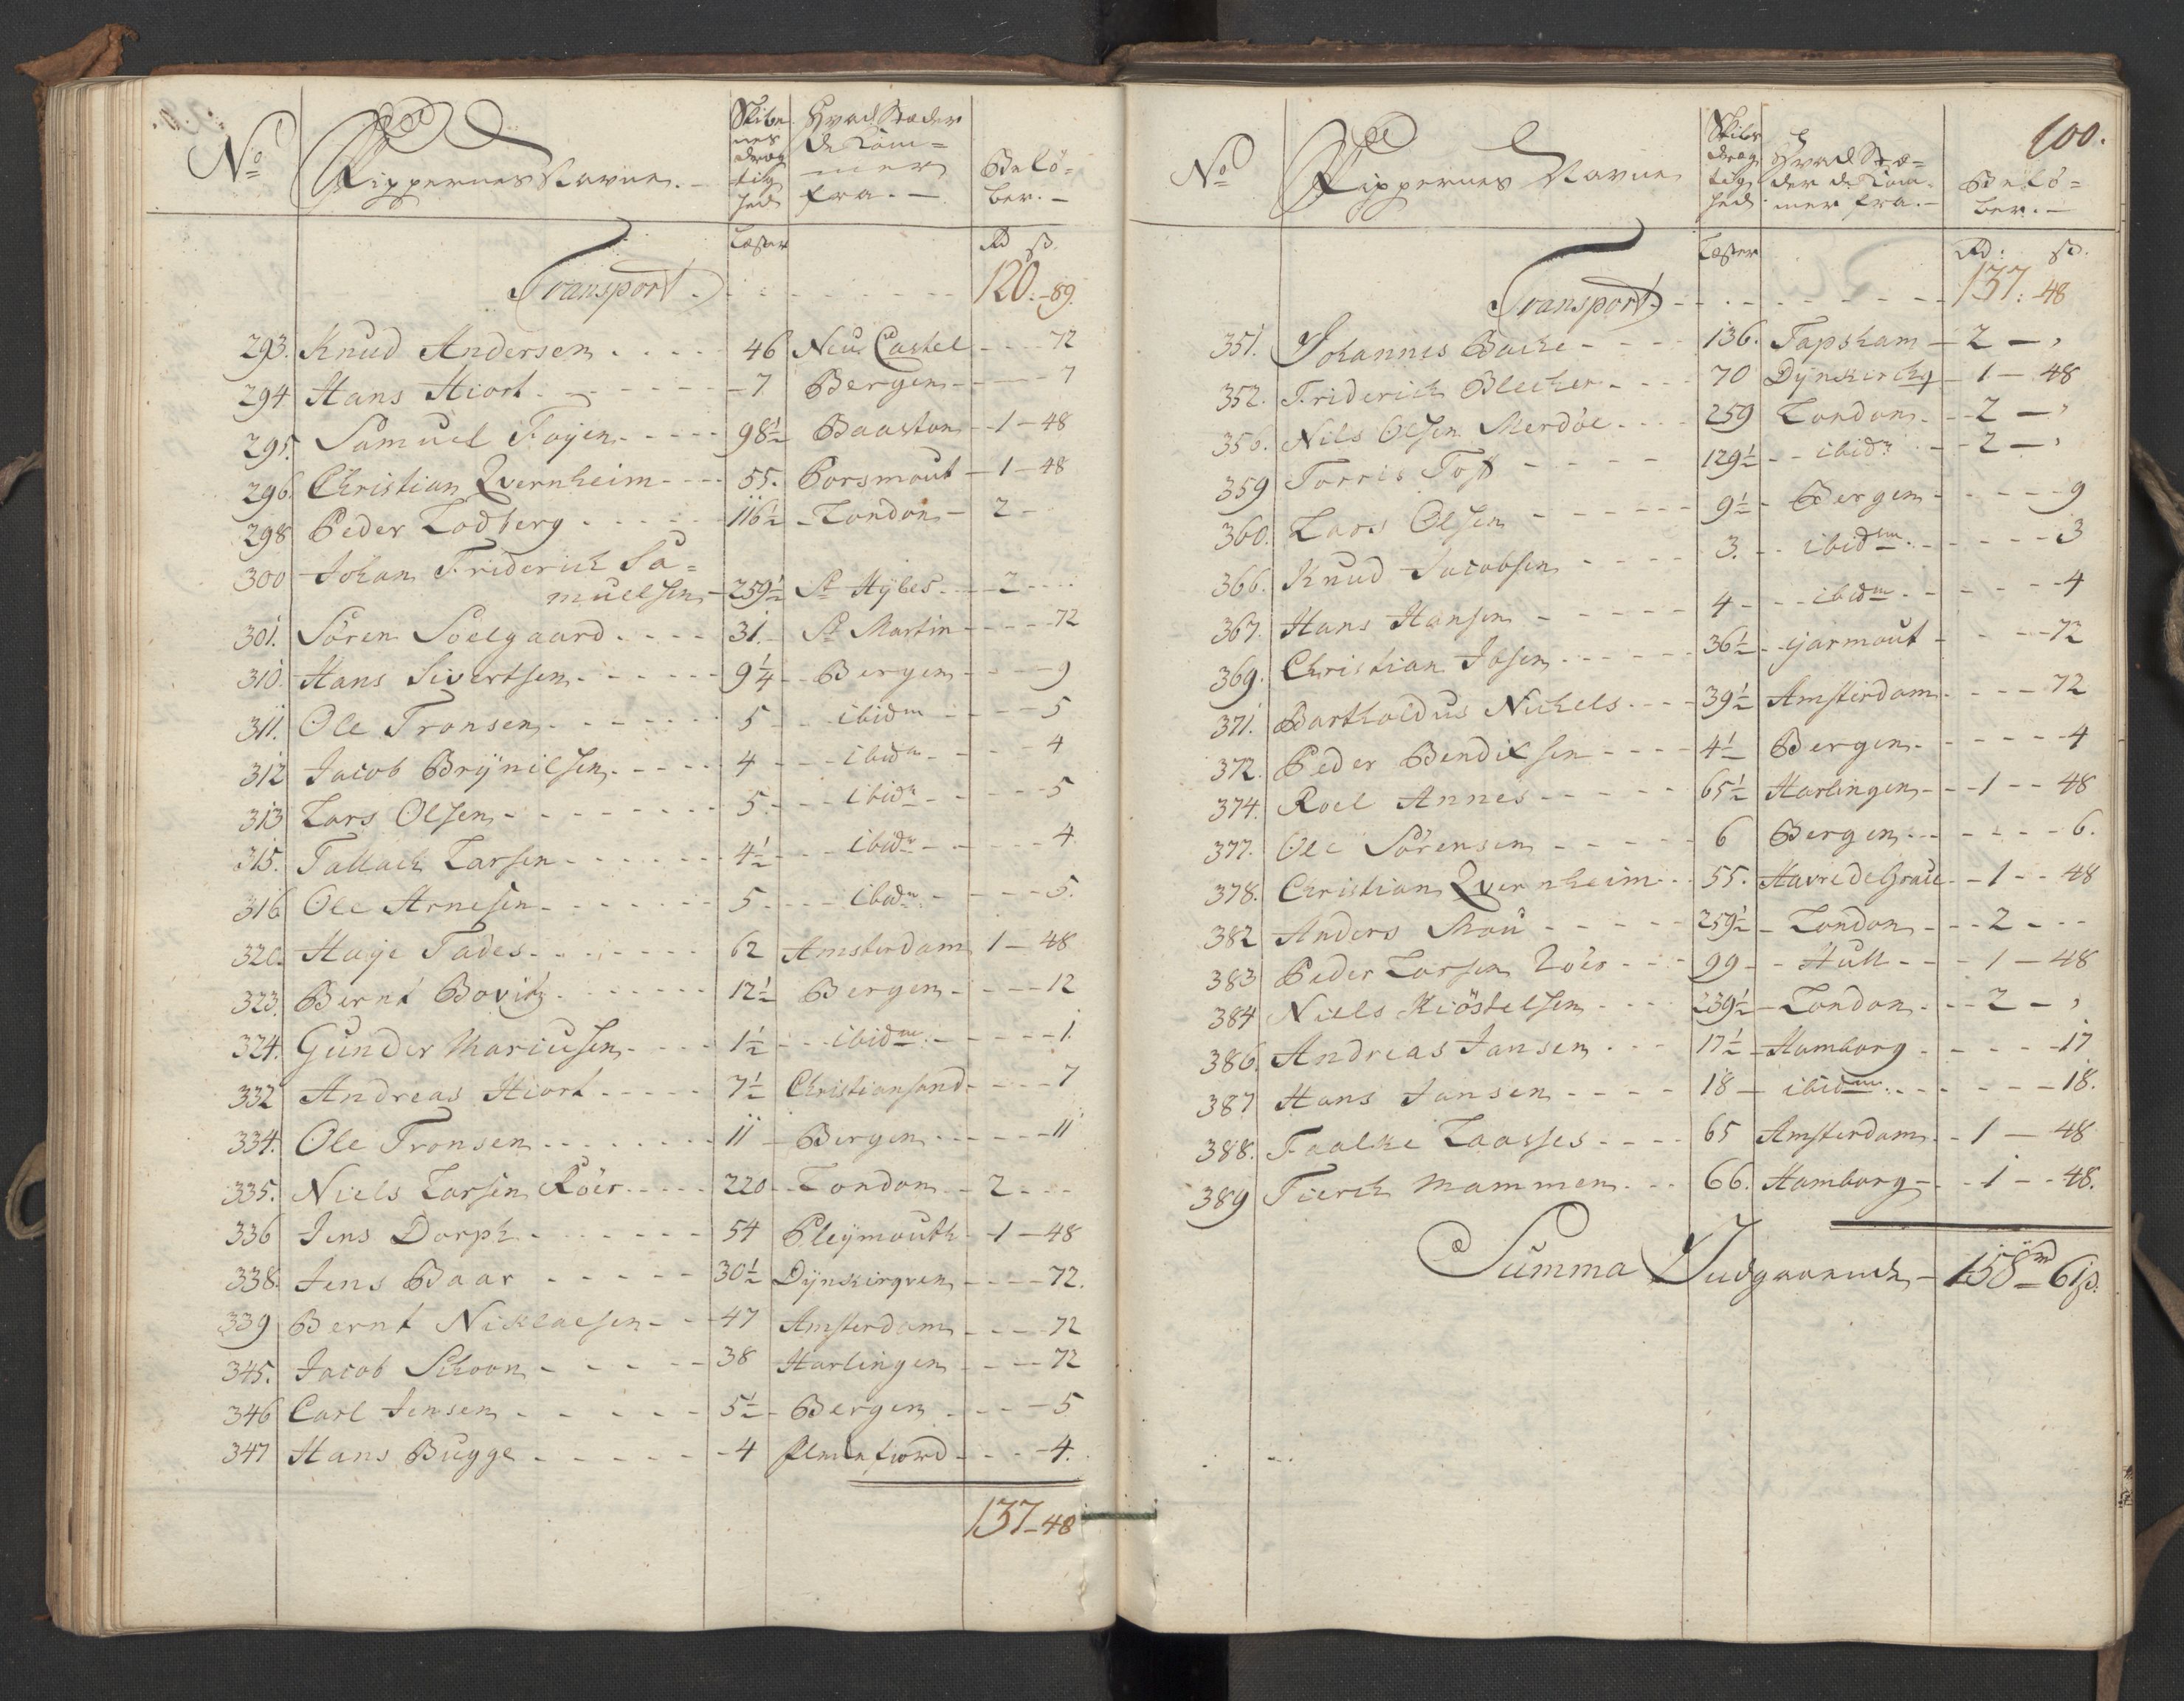 No
Skippernes Navne.
Skibe
nes
dræg
tig
hed
Hvad Stæder
de kom=
mer
fra. —
Belö=
ber. —
Læster
Rd ss
Transport. 120. - 89.
293. Knud Andersen 46 Neu Castel 72
294. Hans Hiort 7 Bergen 7
295. Samuel Foyen 98½ Baaston 1 - 48
296. Christian Qvernheim 55. Porsmout 1 - 48
298 Peder Lodberg 116½ London 2 -
300 Johan Friderich Sa=
muelsen 259½ St Hÿbes 2
301. Sören Soelgaard 31. St Martin 72
310. Hans Sivertsen 9¼ Bergen 9
311. Ole Tronsen 5 ibidm 5
312 Jacob Brÿnilsen 4 ibidm 4
313 Lars Olsen 5 ibidm 5
315. Tallach Larsen 4½ ibidm 4
316 Ole Arnesen 5 ibidm 5.
320. Haÿe Tades 62 Amsterdam 1 - 48
323. Bernt Bovitz 12½ Bergen 12
324. Gunder Mariusen 1½ ibidm 1.
332 Andreas Hiort 7½ Christiansand 7
334. Ole Tronsen 11 Bergen 11
335. Niels Larsen Röer 220 London 2
336 Jens Dorph 54 Pleÿmouth 1 - 48
338. Jens Baar 30½ Dÿnkirqven 72.
339 Bernt Nicklaesen 47 Amsterdam 72
345. Jacob Schoon 38 Harlingen 72
346 Carl Jensen 5½ Bergen 5
347 Hans Bugge 4 4.
137 - 48
100.
No
Skippernes Navne
Skibs
dræg
tig
hed
Hvad Stæ=
der de kom=
mer fra. —
Belö=
ber. —
Læster
Rd: ss.
Transport 137. - 48
351. Johannes Backe 136. Tapsham 2 - ,
352. Friderich Blecher 70 Dÿnkerchq 1 - 48
356. Nils Olsen Merdöe 259 London 2 - ,
359 Torris Toft 129½ ibidm 2 - ,
360. Lars Olsen 9½ Bergen 9
366. Knud Jacobsen 3. ibidm 3
367. Hans Hansen 4 ibidm 4
369. Christian Josen 36½ Yarmout 72
371. Bartholdus Nickels 39½ Amsterdam 72
372. Peder Bendixsen 4½ Bergen 4
374. Roel Annes 65½ Harlingen 1 - 48
377. Ole Sörensen 6 Bergen 6.
378. Christian Qvernheim 55. Havre de Grace 1 - 48
382 Anders Mou 259½ London 2
383 Peder Larsen Röer 99 Hull 1 - 48
384 Niels Kiöstelsen 239½ London 2 - ,
386. Andreas Jansen 17½ Hamborg 17
387 Hans Jansen 18 ibidm 18.
388. Faalke Laasses 65 Amsterdam 1 - 48
389 Tierck Mammen 66. Hamborg 1 - 48.
Summa Indgaaende 158 rd 61 ss.